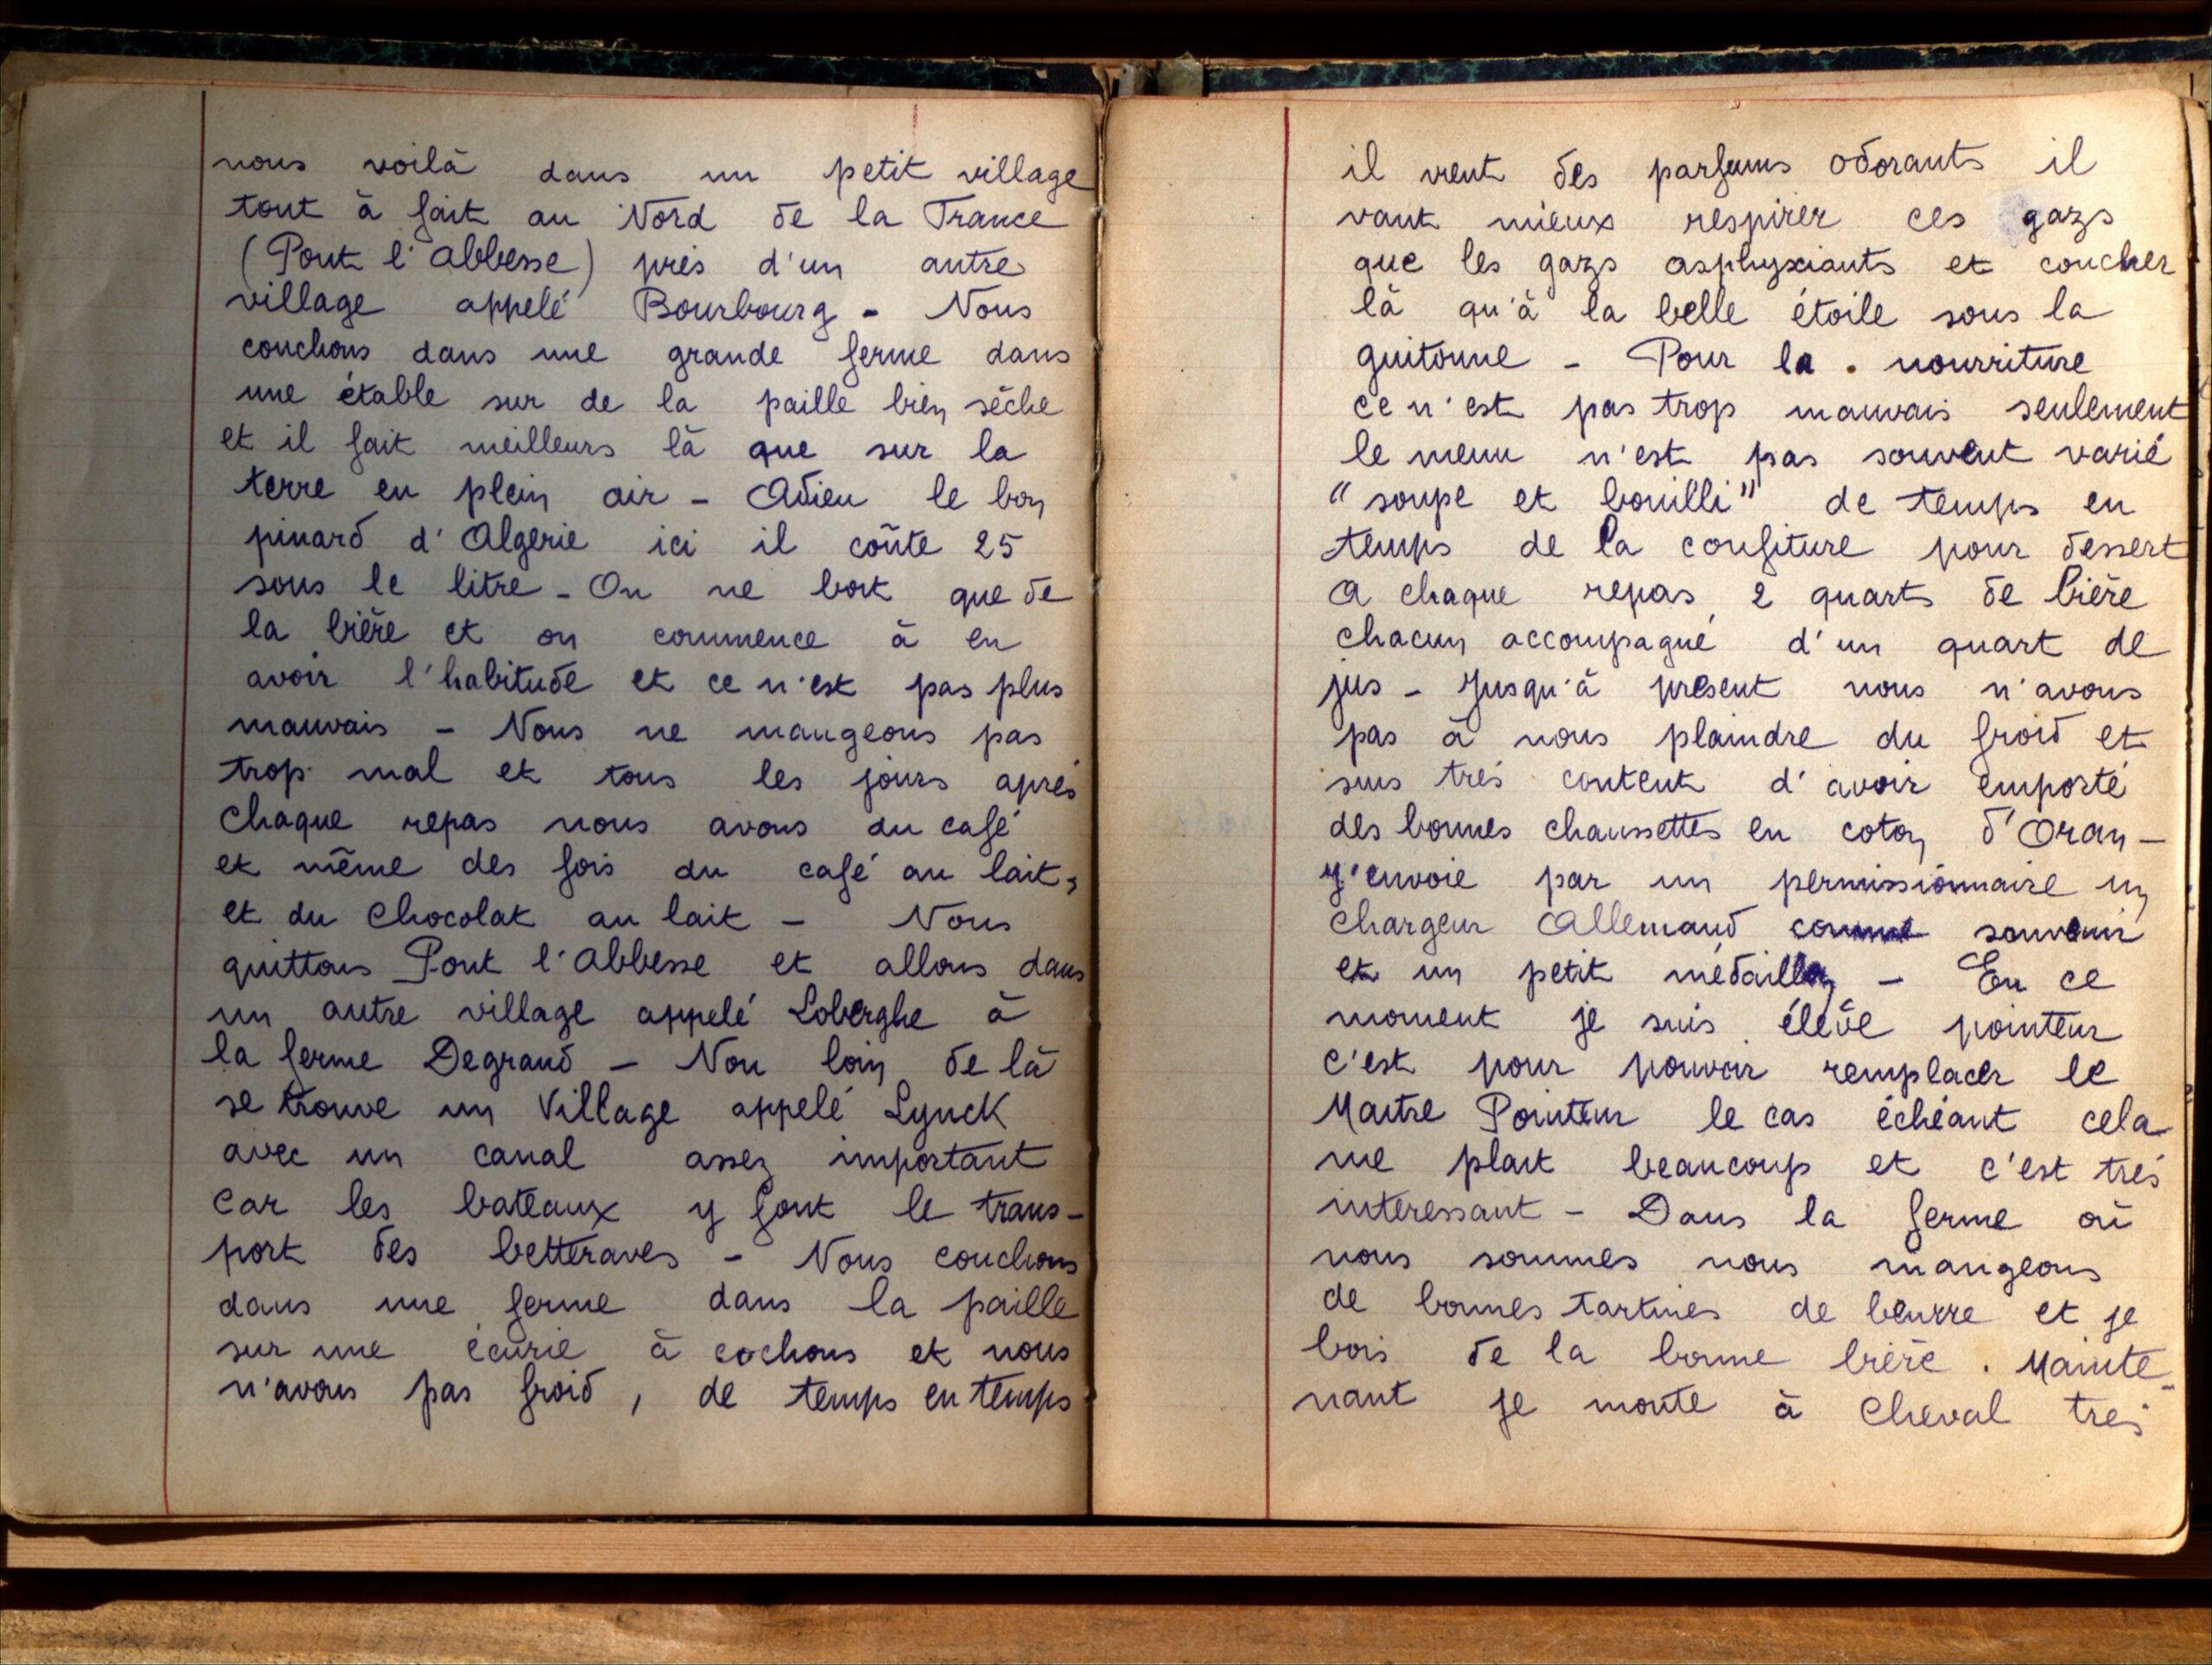 nous voilà dans un petit village
tout à fait au Nord de la France
(Pont l'abbesse) près d'un autre
village appelé Bourbourg - Nous
couchons dans une grande ferme dans
une étable sur de la paille bien sèche
et il fait meilleurs là que sur la
terre en plein air - Adieu le bon
pinard d'Algerie ici il coûte 25
sous le litre - On ne boit que de
la bière et on commence à en
avoir l'habitude et ce n'est pas plus
mauvais - Nous ne mangeons pas
trop mal et tous les jours après
chaque repas nous avons du café
et même des fois du café au lait,
et du chocolat au lait - Nous
quittons Pont l'abbesse et allons dans
un autre village appelé Loberghe à
la ferme Degrand - Non loin de là
se trouve un Village appelé Lynck
avec un canal assez important
car les bateaux y font le trans-
port des betteraves - Nous couchons
dans une ferme dans la paille
sur une écurie à cochons et nous
n'avons pas froid, de temps en temps
il vient des parfums odorants il
vaut mieux respirer ces gazs
que les gazs asphyxiants et coucher
là qu'à la belle étoile sous la
guitoune - Pour la . nourriture
ce n'est pas trop mauvais seulement
le menu n'est pas souvent varié
"soupe et bouilli" de temps en
temps de la confiture pour dessert
a chaque repas 2 quarts de bière
chacun accompagné d'un quart de
jus - Jusqu'à present nous n'avons
pas à nous plaindre du froid et
suis très content d'avoir emporté
des bonnes chaussettes en coton d'Oran -
J'envoie par un permissionnaire un
chargeur Allemand comme souvenir
et un petit médaillon - En ce
moment je suis élève pointeur
c'est pour pouvoir remplacer le
Maitre Pointeur le cas échéant cela
me plait beaucoup et c'est très
interessant - Dans la ferme où
nous sommes nous mangeons
de bonnes tartines de beurre et je
bois de la bonne bière. Mainte-
nant je monte à cheval très